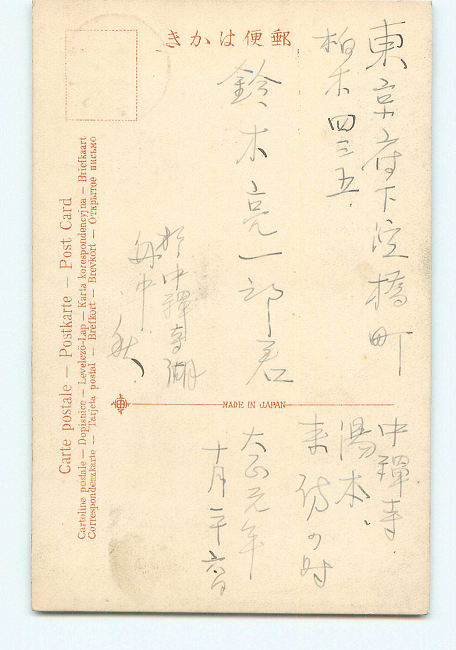 きかはほ便郵
東京府下淀橋町
柏木四三五.
鈴木亮一郎君
於中禅寺湖
中禅寺.
湯本.
大正元年
十月二十六日
MADE IN JAPAN
Carte postale — Postkarte — Post Card
Cartolina postale — Dopisnice — Levelező-Lap — Karta korespondencyjna — Briefkaart
Correspondenzkarte — Tarjeta postal — Brefkort — Brevkort — Открытое письмо